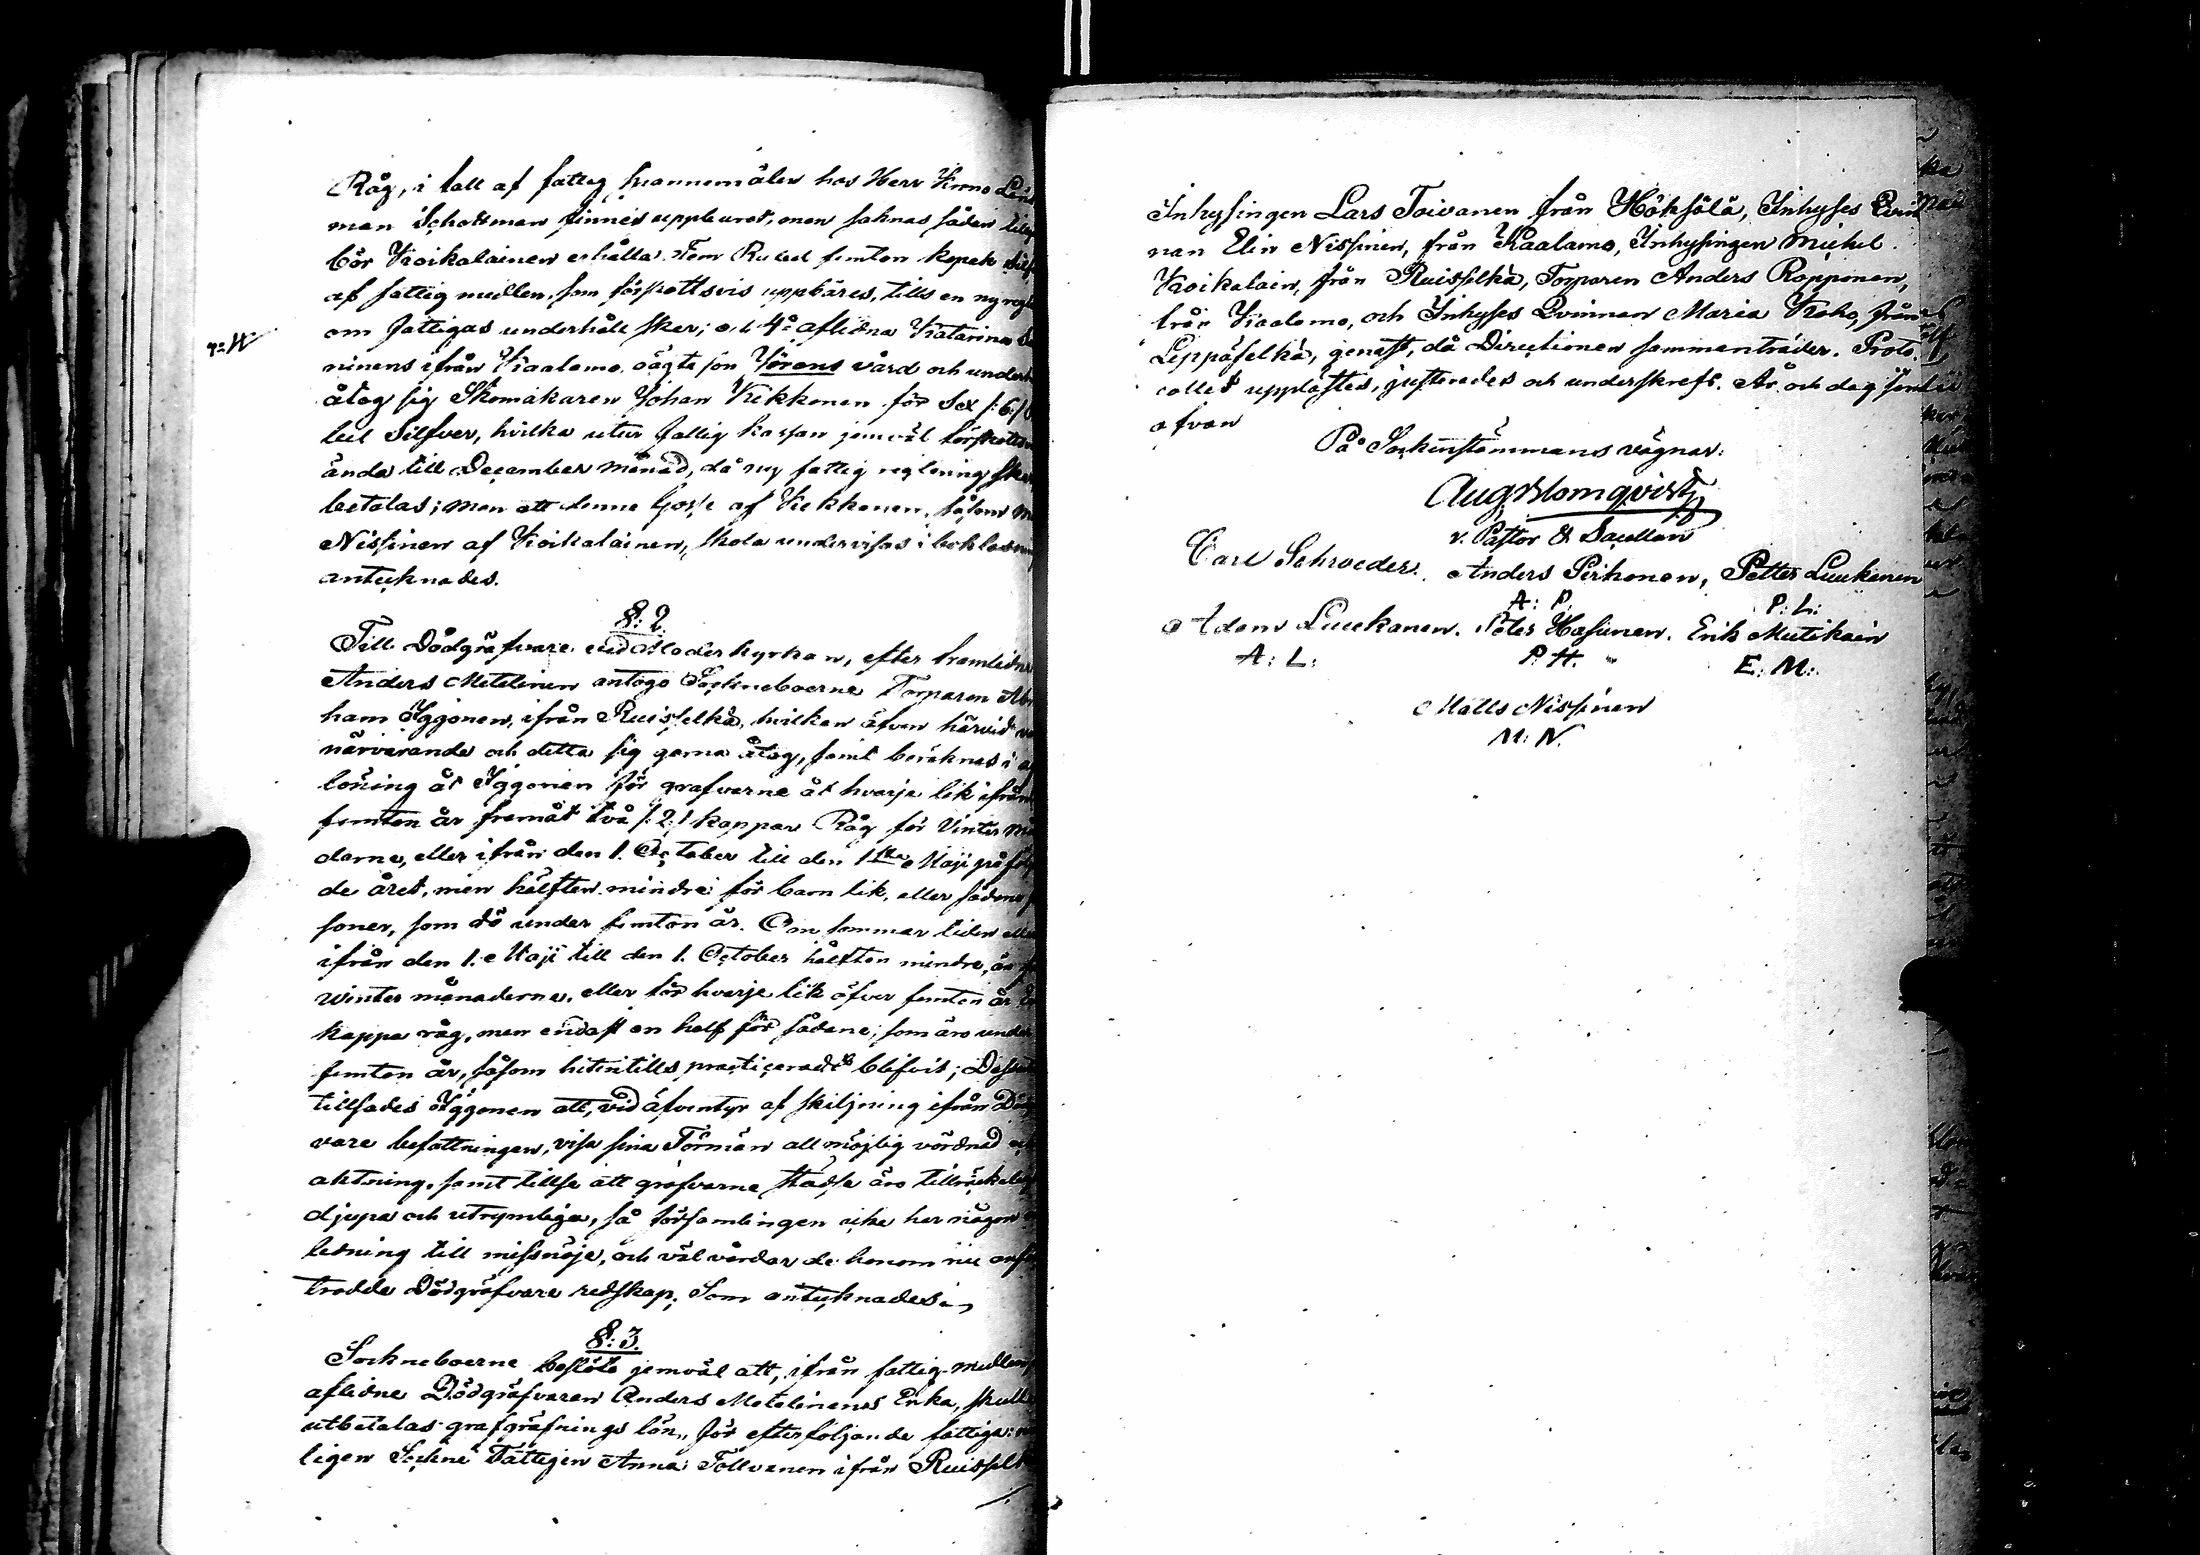 Råg, i fall af fattig spannemålen hos Herr Krono Läns
man Schotsman finnes uppburet, men saknas sådan
bör Koikalainen erhålla Fem Rubel femton kopek Silf
af fattigmedlen, som förskottsvis uppbäres, tills en ny regl
om fattigas underhåll sker; o. d. 4:o aflidna Katarina
ninens ifrån Kaalamo oägte son Görans vård och under
åtog sig Skomakaren Johan Kekkonen för Sex /:6:/
bel Silfver, hvilka utur fattig kassan jemväl förskotts
ända till December månad, då ny fattig reglering sker
betalas; men att denne Gosse af Kekkonen, såsom
Nissinen af Koikalainen, skola undervisas i bokläsning
antecknades.
§: 2.
Till Dödgräfvare vid Moderkyrkan, efter framlidne
Anders Metelinen antogo Sockneboerne Torparen Abra
ham Iggonen, ifrån Ruisselkä, hvilken äfven härvid var
närvarande och detta sig gerna åtog, samt beräknas i af
löning åt Iggonen för grafvarne åt hvarje lik ifrån
femton år framåt två /:2:/ kappar Råg för Vinter må
darne, eller ifrån den 1. October till den 1sta Maji påföl
de året, men hälften mindre för barn lik, eller sådane
soner, som dö under femton år. Om sommar tiden eller
ifrån den 1. Maji till den 1. October hälften mindre, än
Winter månaderna, eller för hvarje lik öfver femton år
kappa råg, men endast en half för sådane, som äro under
femton år, såsom hitintills practiceradt blifvit; Dess
tillsades Iggonen att, vid äfventyr af skiljning ifrån Död
vare befattningen, visa sina Förmän all möjlig vördnad och
aktning, samt tillse att grafvarne städse äro tillräckeligt
djupa och utrymliga, så församlingen icke har någon
ledning till missnöje, och väl vårdar de honom nu anför
trodde Dödgräfvare redskap. Som antecknades.
§: 3.
Sockneboerne beslöto jemväl att, ifrån fattig-medlen
aflidne Dödgräfvaren Anders Metelinens Enka, skulle
utbetalas grafgräfnings lön, för efterföljande fattiga:
ligen Sockne Fattigen Anna Tollvanen ifrån Ruisselkä
Inhysingen Lars Toivanen från Höksölä, Inhyses Qvin
nan Elin Nissinen, från Kaalamo, Inhysingen Michel
Koikalain, från Ruisselkä, Torparen Anders Ropponen,
från Kaalamo, och Inhyses Qvinnan Maria Koho, från
Leppäselkä, genast, då Directionen sammanträder. Proto-
collet upplästes, justerades och underskrefs. År och dag som
ofvan
På Sockenstämmans vägnar:
Aug Blomqvist
v. Pastor & Sacellan
Carl Schroeder. Anders Pirhonen, Petter Luukonen
A: P. P: L:
Adam Luukanen. Peter Hasunen. Erik Mutikain
A: L: P: H. E: M:
Matts Nissinen
M: N.